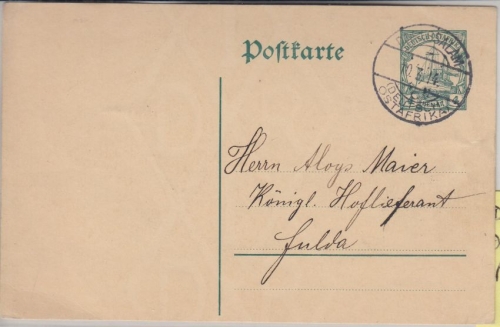 Postkarte
DEUTSCH-OSTAFRIKA
OSTAFRIKA
Herrn Aloys Maier
Königl. Hoflieferant
Fulda